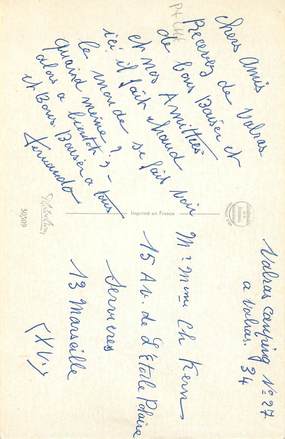 Chers Amis
Recevez de Valras
de bons Baiser et
et nos Amittiés
ici il fait chaud
le monde se fait voir
quand meine ?
alors a bientôt -
et Bons Baiser a tous
Fernando
50509
Imprimé en France
Valras camping No 27
a Valras. 34
Mr Mme Ch Kern
15 Av. de L'Etoile Polaire
Servieres
13 Marseille
(XV.)